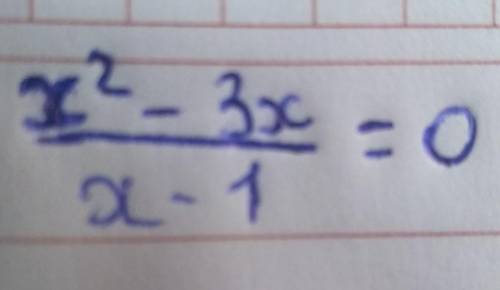 x² - 3x
x - 1 = 0